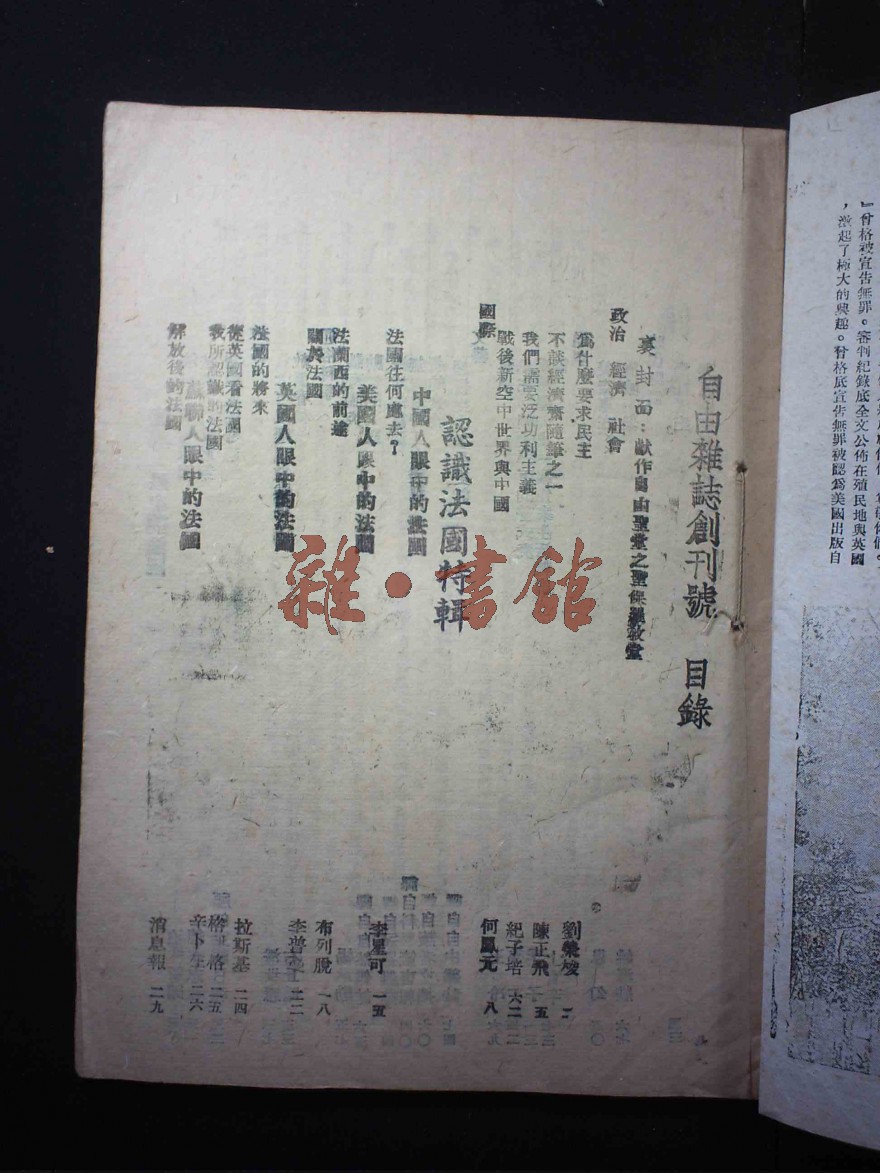 自由雜誌創刊號 目錄
裏封面：獻作自由聖堂之聖保羅教堂
政治 經濟 社會
爲什麼要求民主 劉榮焌 二
不談經濟齋隨筆之一 陳正飛 五
我們需要泛功利主義 紀子培 六
戰後新空中世界與中國 何鳳元 八
國際
認識法國特輯
中國人眼中的法國
法國往何處去？ 李星可 一五
美國人眼中的法國
法蘭西的前途 布列脫 一八
關於法國 李普 二二
英國人眼中的法國
法國的將來 拉斯基 二四
從英國看法國 格 格 二五
我所認識的法國 辛卜 二六
蘇聯人眼中的法國
解放後的法國 消息報 二九
雜·書館
』曾格被宣告無罪。審判紀錄底全文公佈在殖民地與英國
，激起了極大的興趣。曾格底宣告無罪被認爲美國出版自